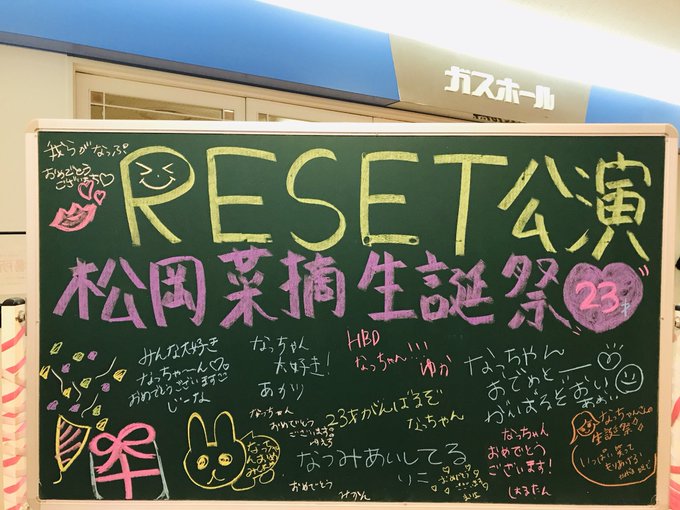 ガスホール
我らがなっぷ
おめでとう
ございます♡
RESET公演
松岡菜摘生誕祭
23才
みんな大好き
なっちゃーん♡
おめでとうございます
じーな
なっちゃん
大好き!
あかり
HBD
なっちゃん!!!
ゆか
なっちゃん
おでめとー
がんばるぞおい
なっちゃん
おめでとう
ございます!
23才がんばるぞ
なっちゃん
なつみあいしてる
りこ
おめでとう
みかん
おめでとう
ございます
なっちゃん
おめでとう
ございます!
はるたん
なっちゃんの
生誕祭
いっぱい笑って